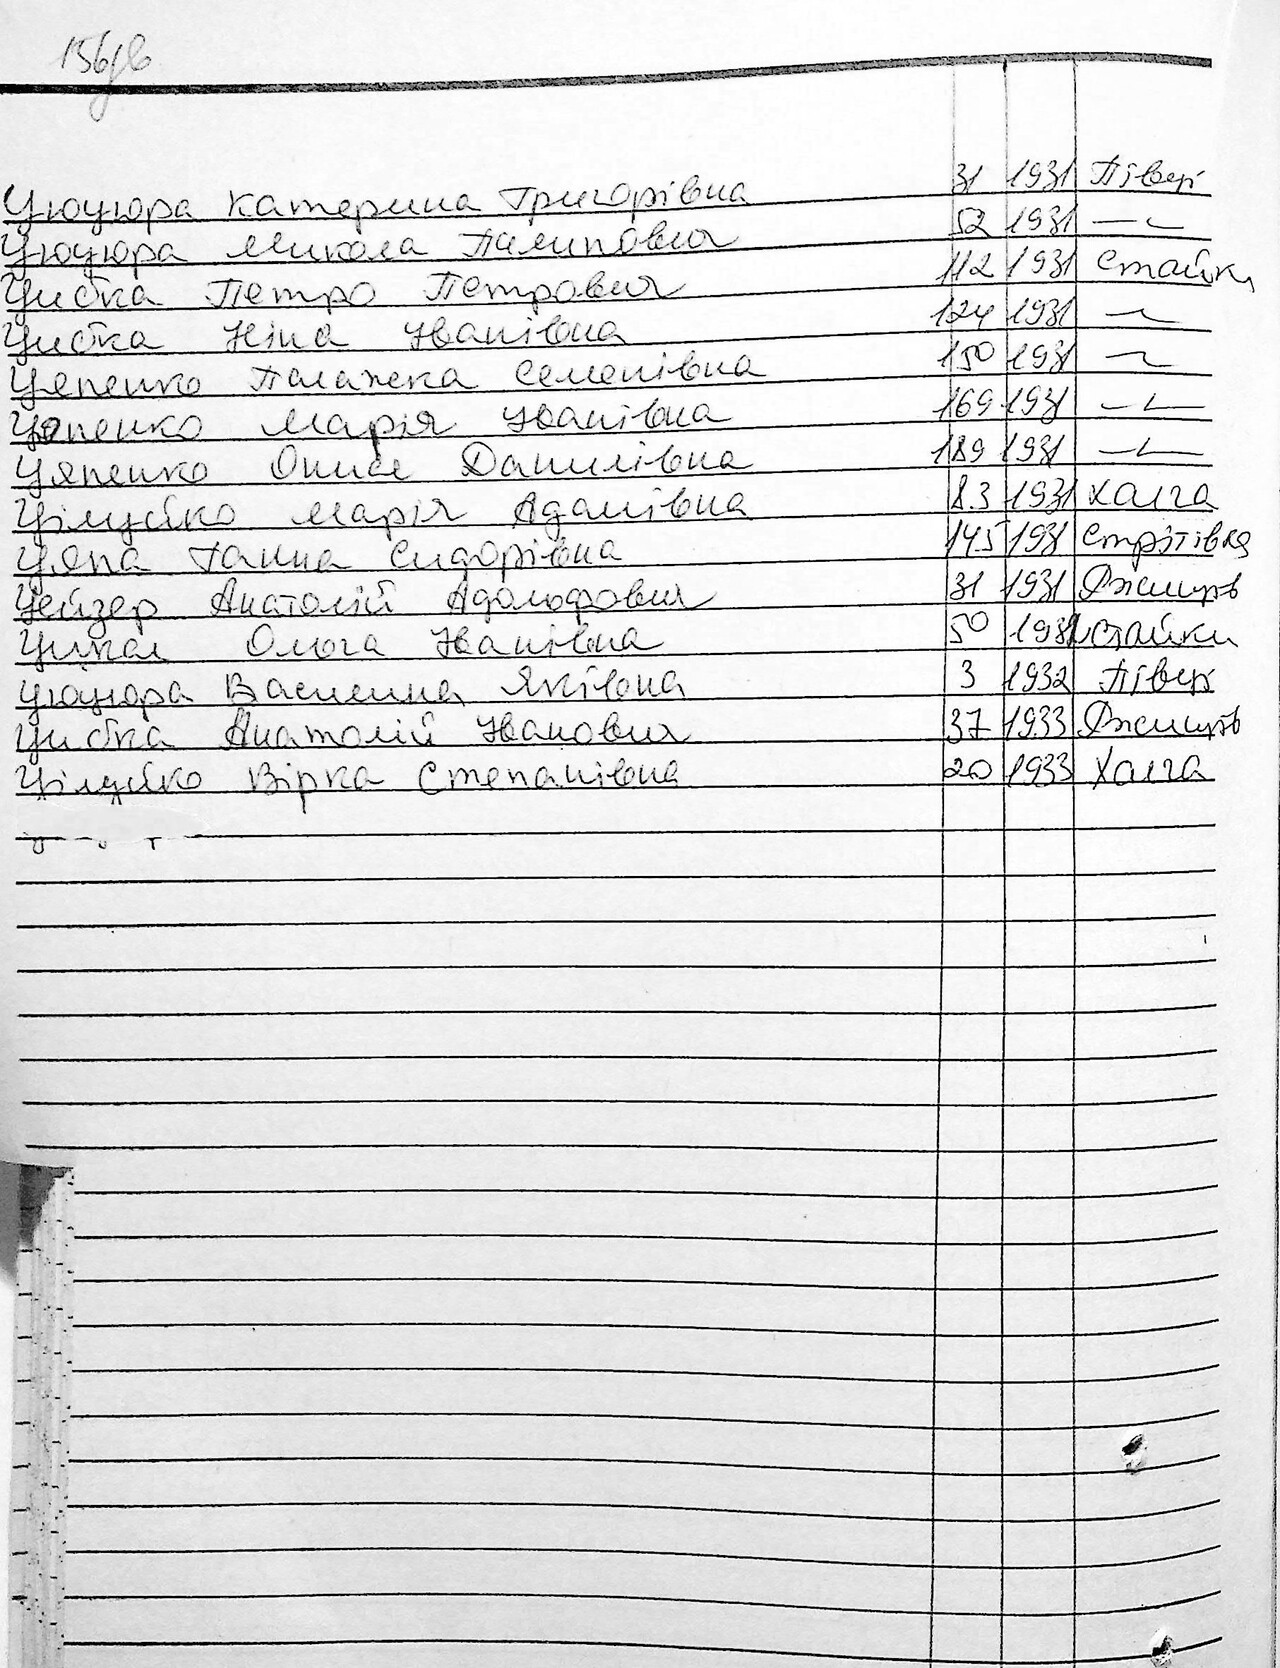 Цюцюра Катерина Григорівна 31 1931 Півці
Цюцюра Микола Пилипович 52 1931 —〃—
Цибка Петро Петрович 112 1931 Стайки
Цибка Ніна Іванівна 124 1931 —〃—
Цяпенко Палажка Семенівна 150 1931 —〃—
Цяпенко Марія Іванівна 169 1931 —〃—
Цяпенко Онися Данилівна 189 1931 —〃—
Цілуйко Марія Адамівна 83 1931 Халча
Цяпа Ганна Сидорівна 145 1931 Стрітівка
Цейзер Анатолій Адольфович 31 1931 Ржищів
Цикал Ольга Іванівна 50 1931 Стайки
Цюцюра Василина Яківна 3 1932 Півці
Цибка Анатолій Іванович 37 1933 Ржищів
Цілуйко Вірка Степанівна 20 1933 Халча